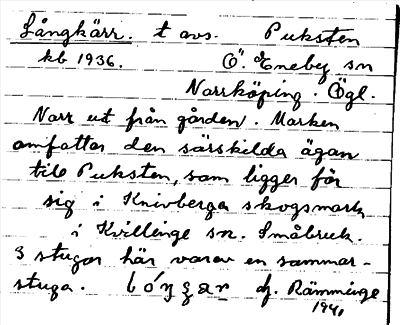 Långkärr. t avs. Puksten
kb 1936. Ö. Eneby sn
Norrköping. Ögl.
Norr ut från gården. Marken
omfattar den särskilda ägan
till Puksten, som ligger för
sig i Knivberga skogsmark
i Kvillinge sn. Småbruk.
3 stugor här varav en sommar-
stuga. Rämminge
1940